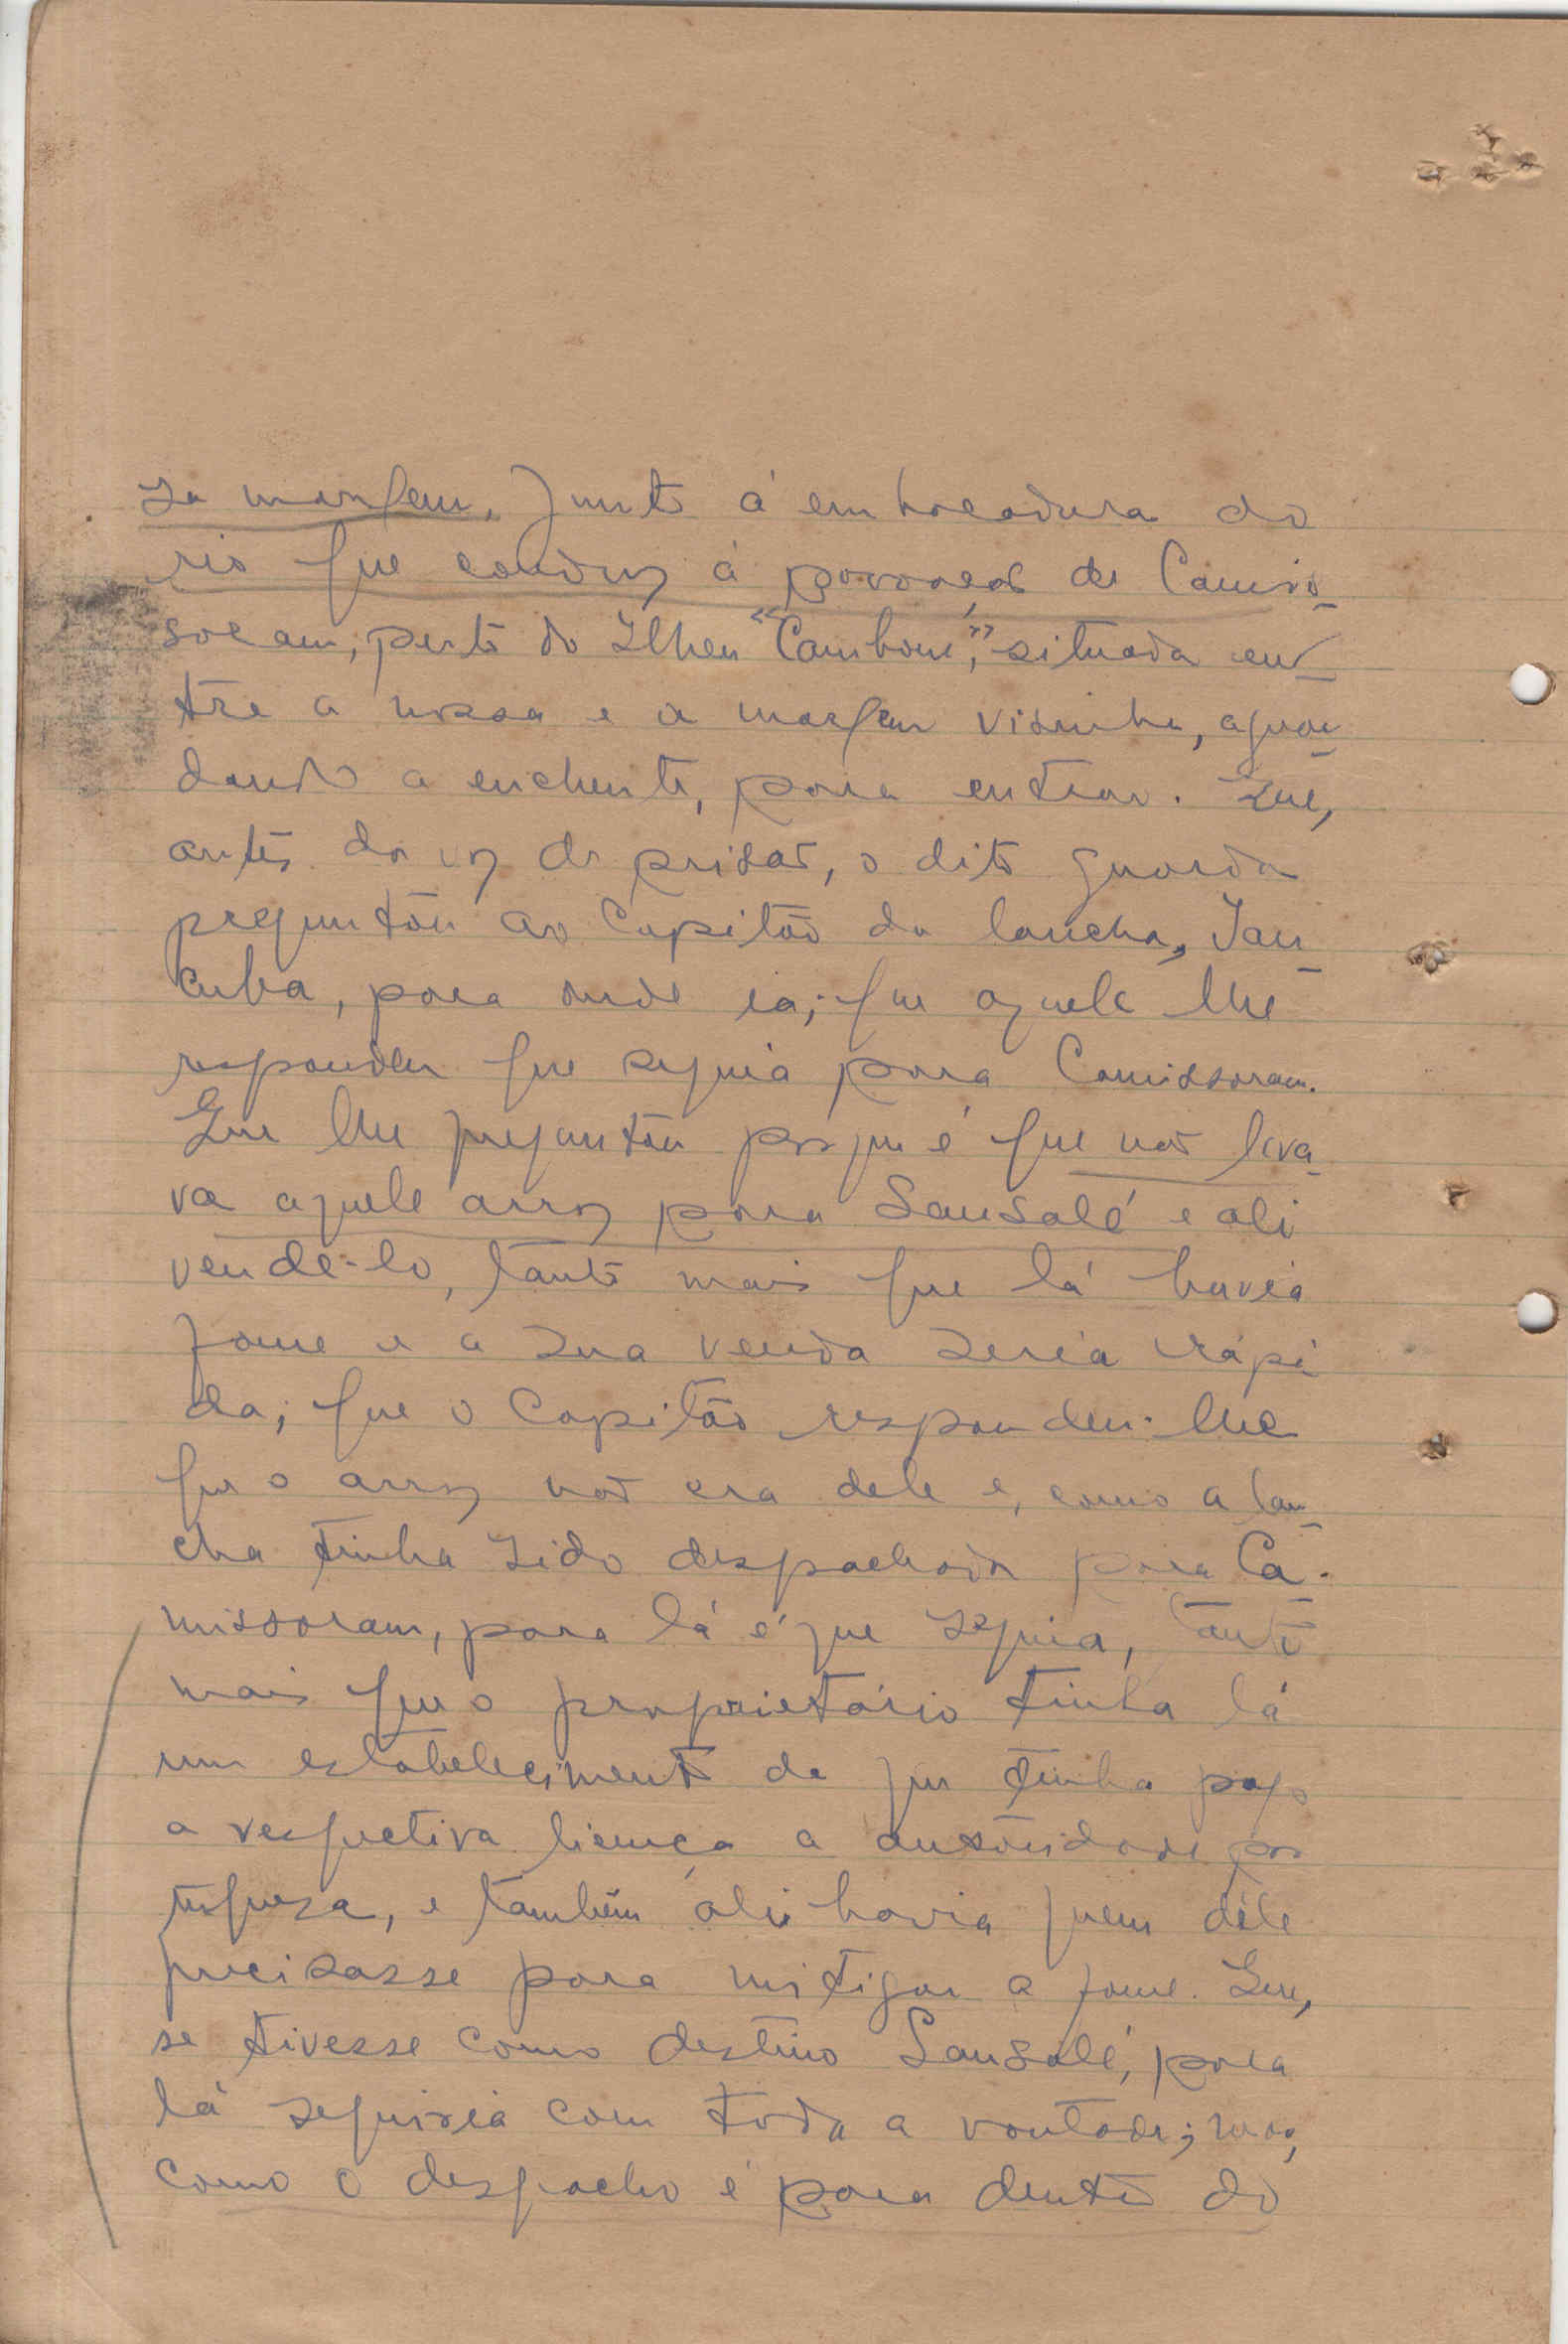 sa margem, junto á embocadura do
rio que conduz á povoação de Camis-
soram, perto do Ilheu "Cambone", situada en-
tre a nossa e a margem visinha, aguar-
dando a enchente, para entrar. Que,
antes da voz de prisão, o dito guarda
preguntou ao Capitão da lancha, Jan-
cuba, para onde ia; que aquele lhe
respondeu que seguia para Camissoram.
Que lhe preguntou porque é que não leva-
va aquele arroz para Sansalé e ali
vende-lo, tanto mais que lá havia
fome e a sua venda seria rápi
da; que o Capitão respondeu-lhe
que o arroz não era dele e, como a lan-
cha tinha sido despachada para Ca-
missoram, para lá é que seguia, tanto
mais que o proprietário tinha lá
um estabelecimento de que tinha pago
a respectiva licença a autoridade por
tuguesa, e também ali havia quem dêle
precisasse para mitigar a fome. Que,
se tivesse como destino Sansalé, para
lá seguiria com toda a vontade; mas,
como o despacho é para dentro do